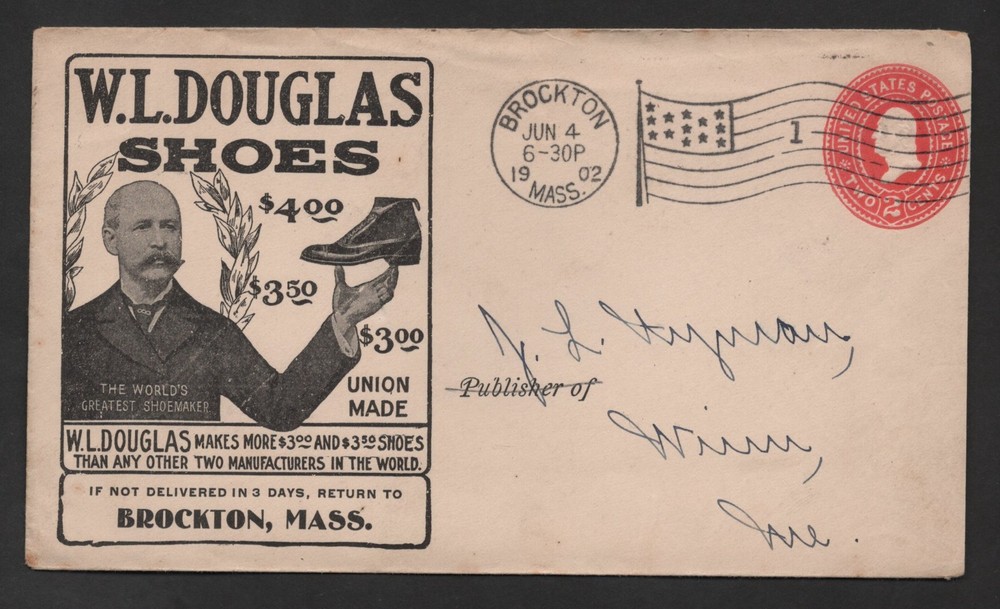 W.L. DOUGLAS
SHOES
$4.00
$3.50
$3.00
UNION
MADE
THE WORLD'S
GREATEST SHOEMAKER
W.L. DOUGLAS MAKES MORE $3.00 AND $3.50 SHOES
THAN ANY OTHER TWO MANUFACTURERS IN THE WORLD.
IF NOT DELIVERED IN 3 DAYS, RETURN TO
BROCKTON, MASS.
BROCKTON
JUN 4
6-30P
19 02
MASS.
1
UNITED STATES POSTAGE
TWO 2 CENTS
J. L.
Publisher of